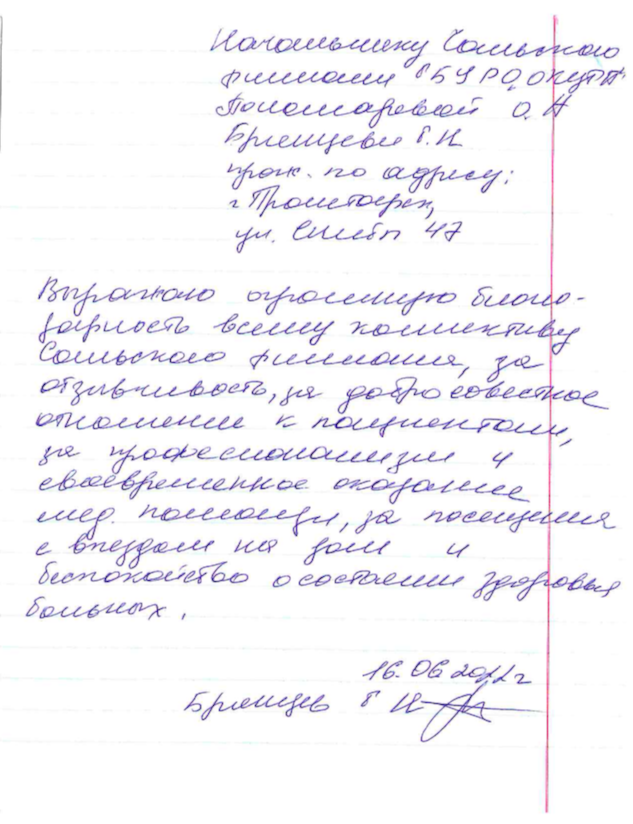 Начальнику Сальского
филиала ГБУ РО, ОКЦФП
Пономаревой О. А
Брянцева Г. И
прож. по адресу:
г Пролетарск,
ул. 47
Выражаю огромную благо-
дарность всему коллективу
Сальского филиала, за
отзывчивость, за добросовестное
отношение к пациентам,
за професионализм и
своевременное оказание
мед. помощи, за посещения
с выездом на дом и
беспокойство о состоянии здоровья
больных.
16.06.2022 г
Брянцев Г И